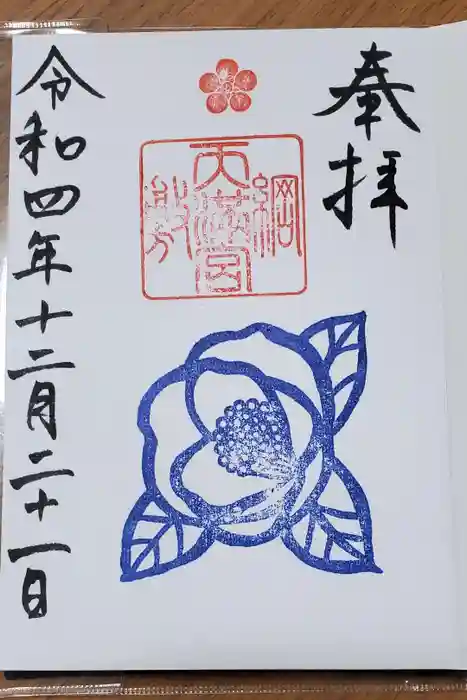 奉拝
綱敷
天満宮
令和四年十二月二十一日